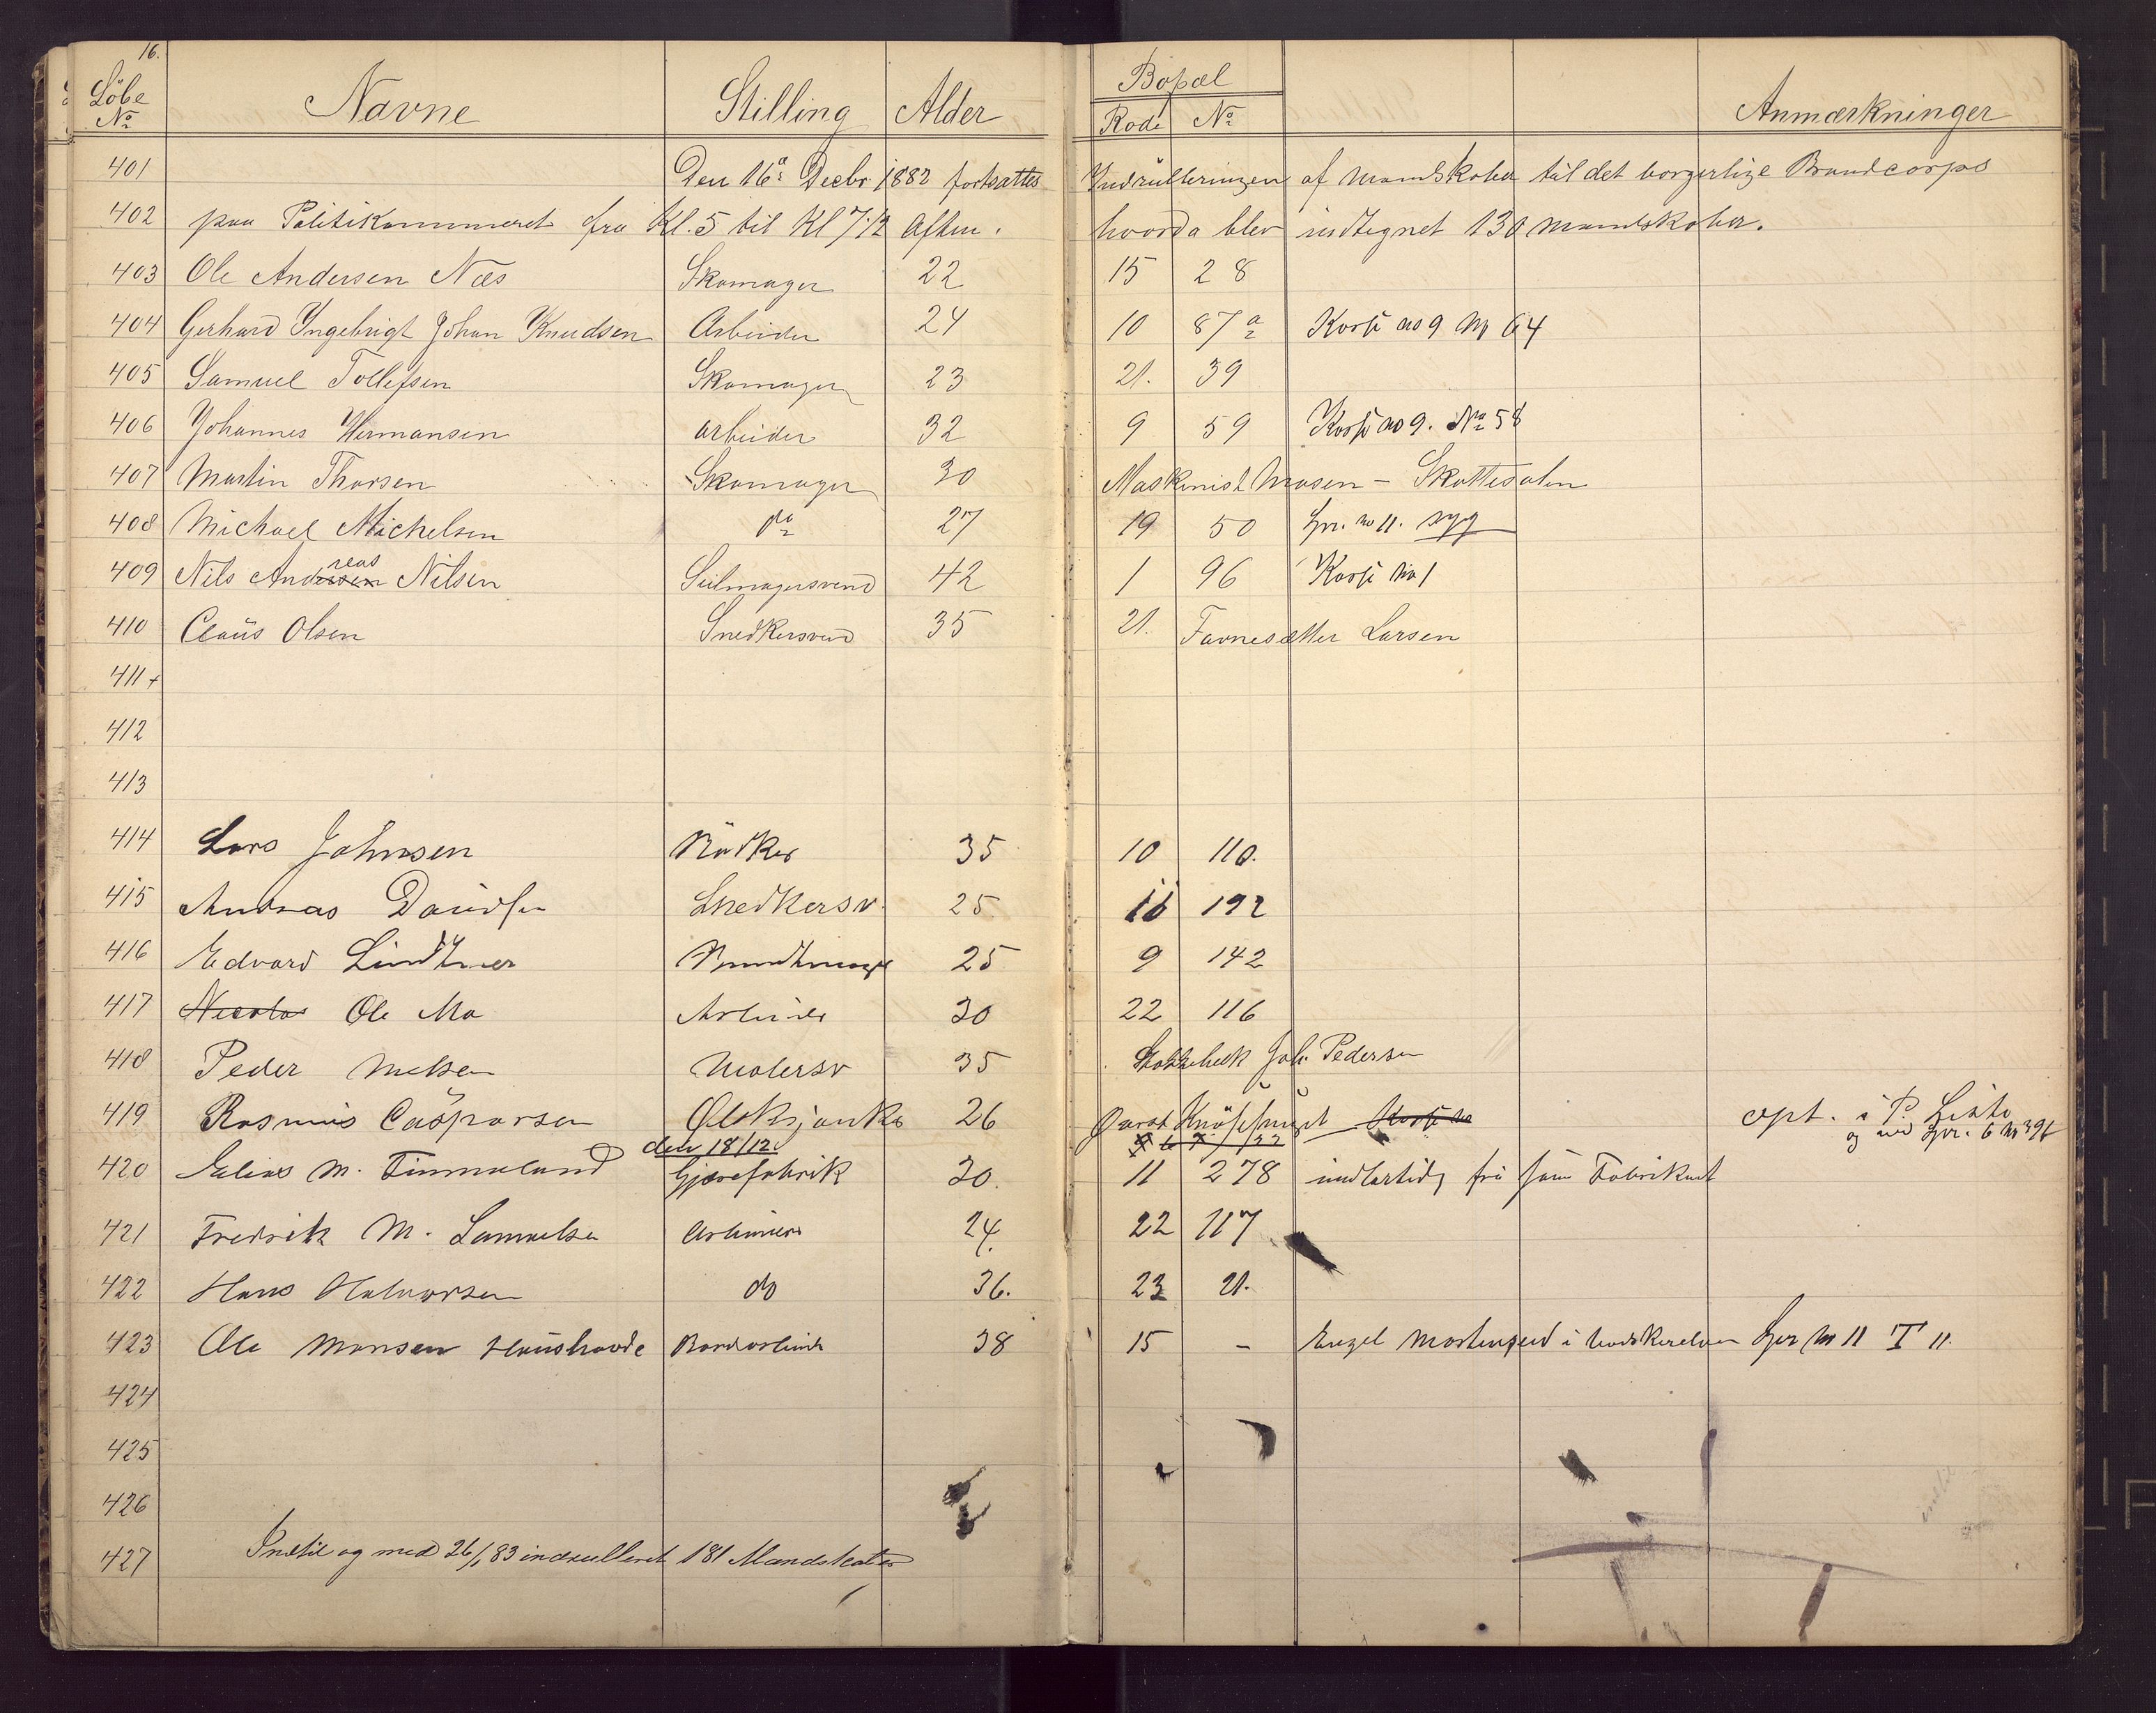 16.
Löbe No Navne Stilling Alder Bopæl Rode No Anmærkninger
401 Den 16de Decbr 1882 fortsattes Indrulleringen af Mandskaber til det borgerlige Brandcorps
402 paa Politikammeret fra Kl. 5 til Kl 7 1/2 Aften. hvorda blev indtegnet 130 Mandskaber.
403 Ole Andersen Næs Skomager 22 15 28
404 Gerhard Ingebrigt Johan Knudsen Arbeider 24 10 87a No 9 No 64
405 Samuel Tollefsen Skomager 23 21. 39
406 Johannes Hermansen arbeider 32 9 59 No 9. No 58
407 Martin Thorsen Skomager 30 Maskinist Mosen - Skottesalen
408 Michael Michelsen do 27 19 50 Spr. No 11. syg
409 Nils Andreas Nilsen Seilmagersvend 42 1 96 No 1
410 Claüs Olsen Snedkersvend 35 21. Favnesætter Larsen
411+
412
413
414 Lars Johnsen Bödker 35 10 110.
415 Andreas Davidsen Snedkersv. 25 11 192
416 Edvard Lindtner 25 9 142
417 Nicolas Ole Mo Arbeider 30 22 116
418 Peder Malersv 35 Joh. Pedersen
419 Rasmus Casparsen 26 opt. i P. Liste
og ved Spr. 6 No 396
den 18/12
420 Elias M. Gjærfabrik 30. 11 278 indlertidg fri som Fabrikant
421 Fredrik M. Samuelsen Arbeider 24. 22 117
422 Hans Halvorsen do 36. 23 21.
423 Ole Monsen Haushavde 38 15 - Engel i Spr No 11 T 11.
424
425
426
427 Indtil og med 26/1 83 indrulleret 181 Mandskaber